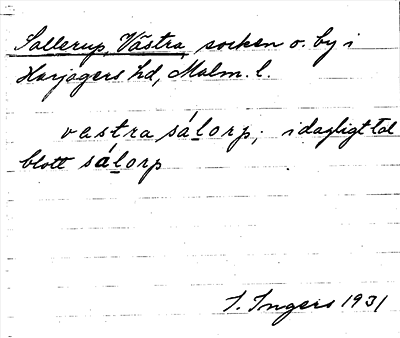 Sallerup, Västra, socken o. by i
Harjagers hd, Malm. l.
vastra sálorp; i dagligt tal
blott sálorp
I. Ingers 1931